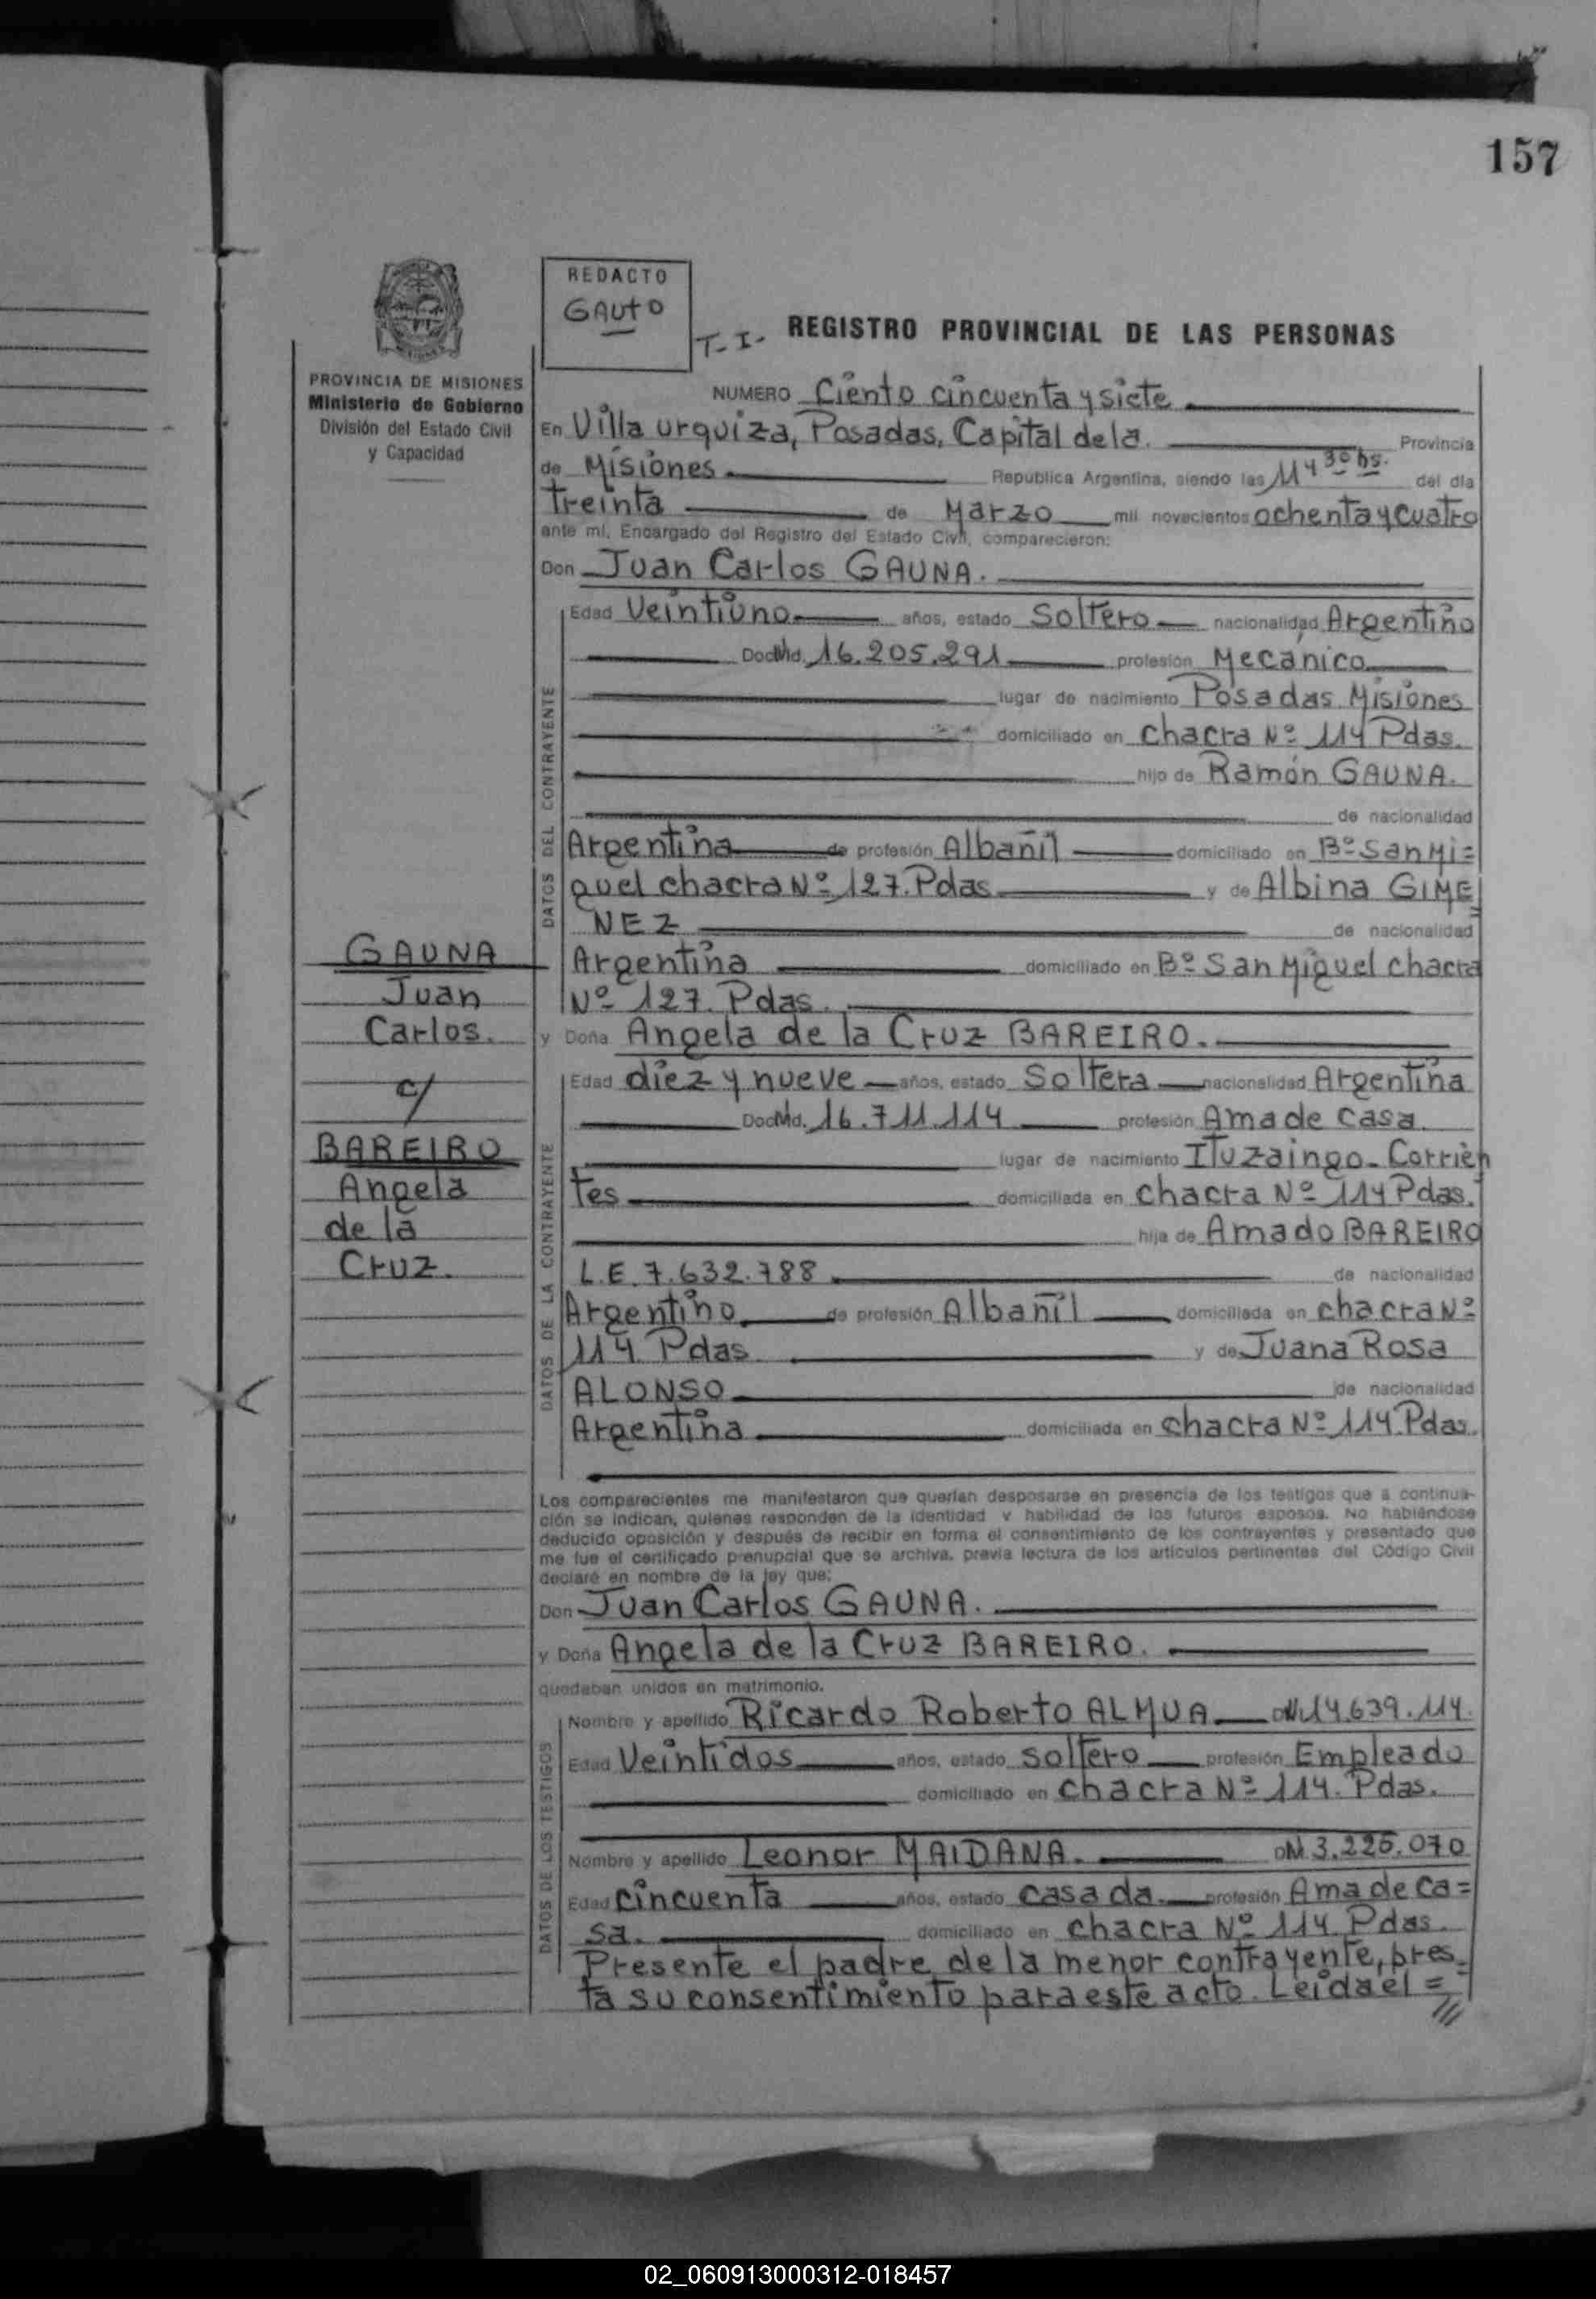 157
REDACTO
GAUTO
T.I.
REGISTRO PROVINCIAL DE LAS PERSONAS
PROVINCIA DE MISIONES
Ministerio de Gobierno
División del Estado Civil
y Capacidad
NUMERO Ciento cincuenta y siete
En Villa urquiza, Posadas, Capital de la. Provincia
de Misiones Republica Argentina, siendo las 11 y 30 hs. del día
treinta de Marzo mil novecientos ochenta y cuatro
ante mí, Encargado del Registro del Estado Civil, comparecieron:
Don Juan Carlos GAUNA.
DATOS DEL CONTRAYENTE
Edad Veintiuno años, estado Soltero nacionalidad Argentino
Doc. 16.205.291 profesión Mecánico
lugar de nacimiento Posadas Misiones
domiciliado en chacra Nº 114 Pdas.
hijo de Ramón GAUNA.
de nacionalidad
Argentina de profesión Albañil domiciliado en Bº San Mi=
guel chacra Nº 127. Pdas y de Albina GIME=
NEZ de nacionalidad
Argentina domiciliado en Bº San Miguel chacra
Nº 127. Pdas.
y Doña Angela de la Cruz BAREIRO.
GAUNA
Juan
Carlos.
c/
BAREIRO
Angela
de la
Cruz.
DATOS DE LA CONTRAYENTE
Edad diez y nueve años, estado Soltera nacionalidad Argentina
Doc. 16.711.114 profesión Ama de casa
lugar de nacimiento Ituzaingo- Corrien
tes domiciliada en chacra Nº 114 Pdas.
hija de Amado BAREIRO
L.E. 7.632.788 de nacionalidad
Argentino de profesión Albañil domiciliada en chacra Nº
114 Pdas y de Juana Rosa
ALONSO de nacionalidad
Argentina domiciliada en chacra Nº 114. Pdas.
Los comparecientes me manifestaron que querían desposarse en presencia de los testigos que a continua-
ción se indican, quienes responden de la identidad y habilidad de los futuros esposos. No habiéndose
deducido oposición y después de recibir en forma el consentimiento de los contrayentes y presentado que
me fue el certificado prenupcial que se archiva, previa lectura de los artículos pertinentes del Código Civil
declaré en nombre de la ley que:
Don Juan Carlos GAUNA.
y Doña Angela de la Cruz BAREIRO.
quedaban unidos en matrimonio.
DATOS DE LOS TESTIGOS
Nombre y apellido Ricardo Roberto ALMUA 14.639.114.
Edad Veintidos años, estado soltero profesión Empleado
domiciliado en chacra Nº 114. Pdas.
Nombre y apellido Leonor MAIDANA. 3.225.070
Edad cincuenta años, estado casada. profesión Ama de Ca=
sa. domiciliado en chacra Nº 114 Pdas.
Presente el padre de la menor contrayente, pres=
ta su consentimiento para este acto. Leida el =
02_060913000312-018457